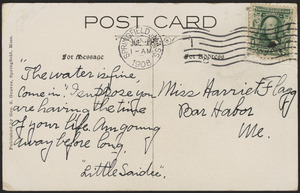 POST CARD
SPRINGFIELD, MASS.
1-AM
1908
For Message
For Address
"The water is fine,
come in". I suppose you
are having the time
of your life. Am going
away before long.
"Little Saidee"
Miss Harriet Flagg
Bar Harbor
Me.